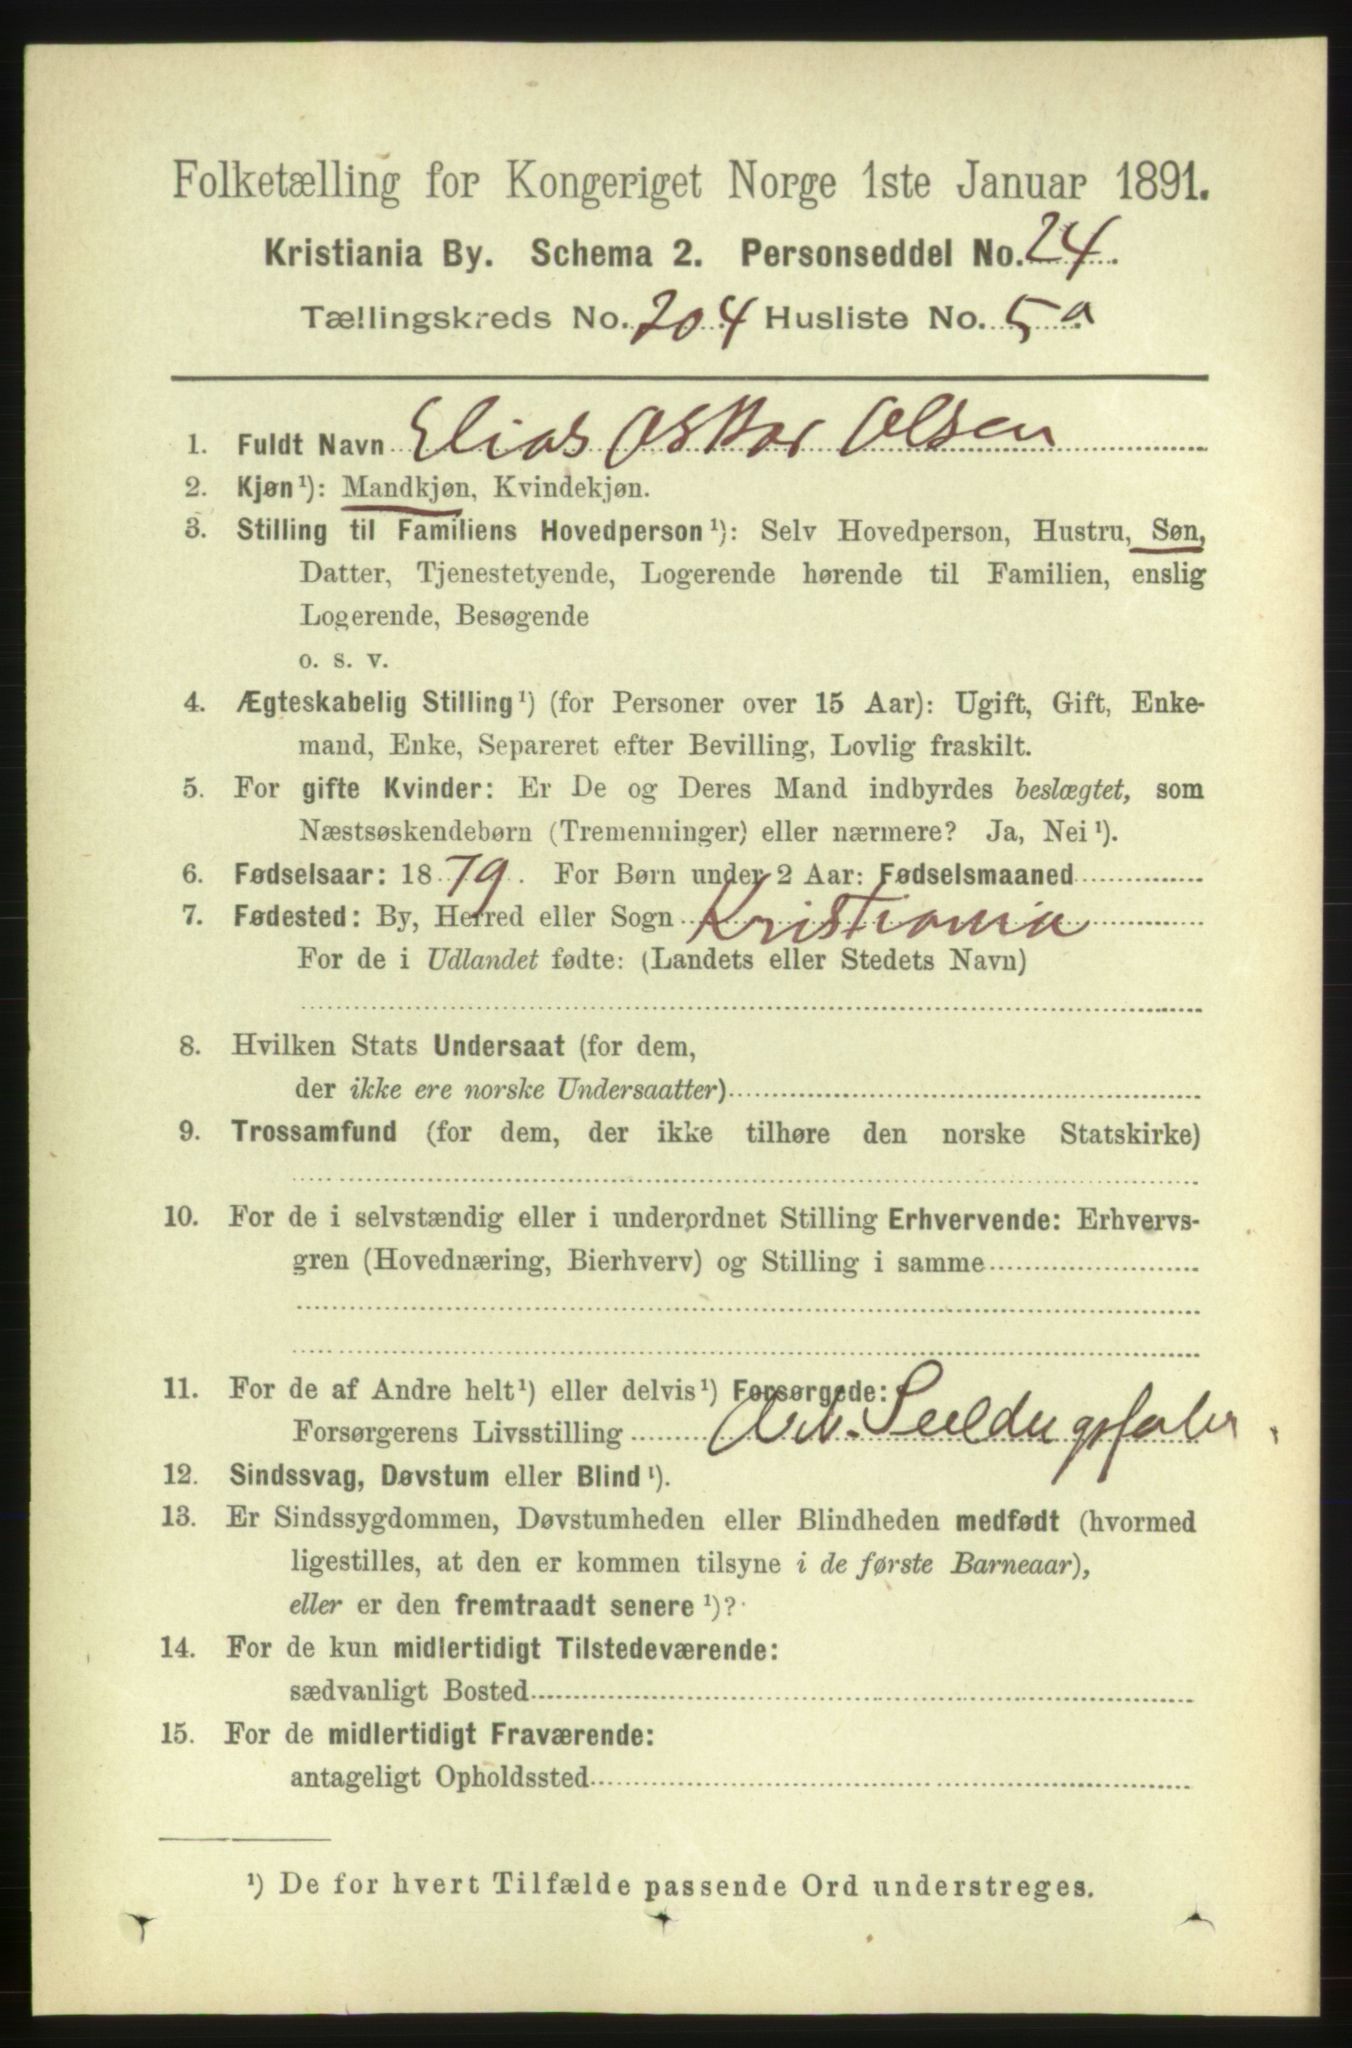 Folketælling for Kongeriget Norge 1ste Januar 1891.
Kristiania By. Schema 2. Personseddel No. 24
Tællingskreds No. 204 Husliste No. 5a
1. Fuldt Navn Elias Oskar Olsen
2. Kjøn¹): Mandkjøn, Kvindekjøn.
3. Stilling til Familiens Hovedperson¹): Selv Hovedperson, Hustru, Søn,
Datter, Tjenestetyende, Logerende hørende til Familien, enslig
Logerende, Besøgende
o. s. v.
4. Ægteskabelig Stilling¹) (for Personer over 15 Aar): Ugift, Gift, Enke-
mand, Enke, Separeret efter Bevilling, Lovlig fraskilt.
5. For gifte Kvinder: Er De og Deres Mand indbyrdes beslægtet, som
Næstsøskendebørn (Tremenninger) eller nærmere? Ja, Nei¹).
6. Fødselsaar: 1879. For Børn under 2 Aar: Fødselsmaaned
7. Fødested: By, Herred eller Sogn Kristiania
For de i Udlandet fødte: (Landets eller Stedets Navn)
8. Hvilken Stats Undersaat (for dem,
der ikke ere norske Undersaatter)
9. Trossamfund (for dem, der ikke tilhøre den norske Statskirke)
10. For de i selvstændig eller i underordnet Stilling Erhvervende: Erhvervs-
gren (Hovednæring, Bierhverv) og Stilling i samme
11. For de af Andre helt¹) eller delvis¹) Forsørgede:
Forsørgerens Livsstilling Arb. Seildugsfabr.
12. Sindssvag, Døvstum eller Blind¹).
13. Er Sindssygdommen, Døvstumheden eller Blindheden medfødt (hvormed
ligestilles, at den er kommen tilsyne i de første Barneaar),
eller er den fremtraadt senere¹)?
14. For de kun midlertidigt Tilstedeværende:
sædvanligt Bosted
15. For de midlertidigt Fraværende:
antageligt Opholdssted
¹) De for hvert Tilfælde passende Ord understreges.